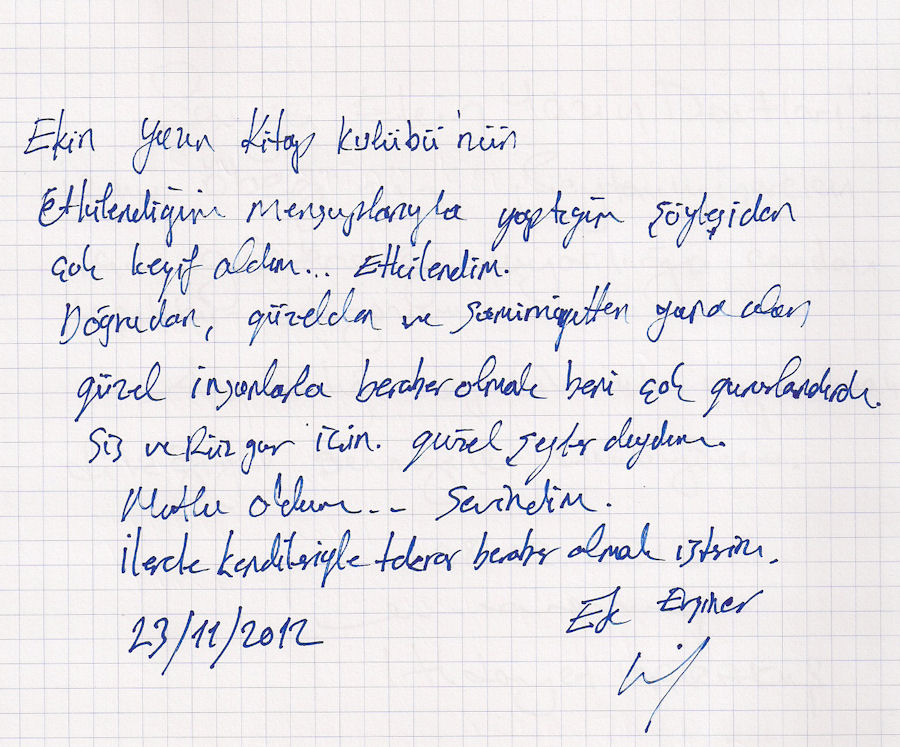 Ekin Yazın Kitap Kulübü'nün
Etkilendiğim mensuplarıyla yaptığım söyleşiden
çok keyif aldım... Etkilendim.
Doğrudan, güzelden ve samimiyetten yana olan
güzel insanlarla beraber olmak beni çok gururlandırdı.
Siz ve Rüzgar için. güzel şeyler duydum.
Mutlu oldum... Sevindim.
İlerde kendileriyle tekrar beraber olmak isterim.
23/11/2012